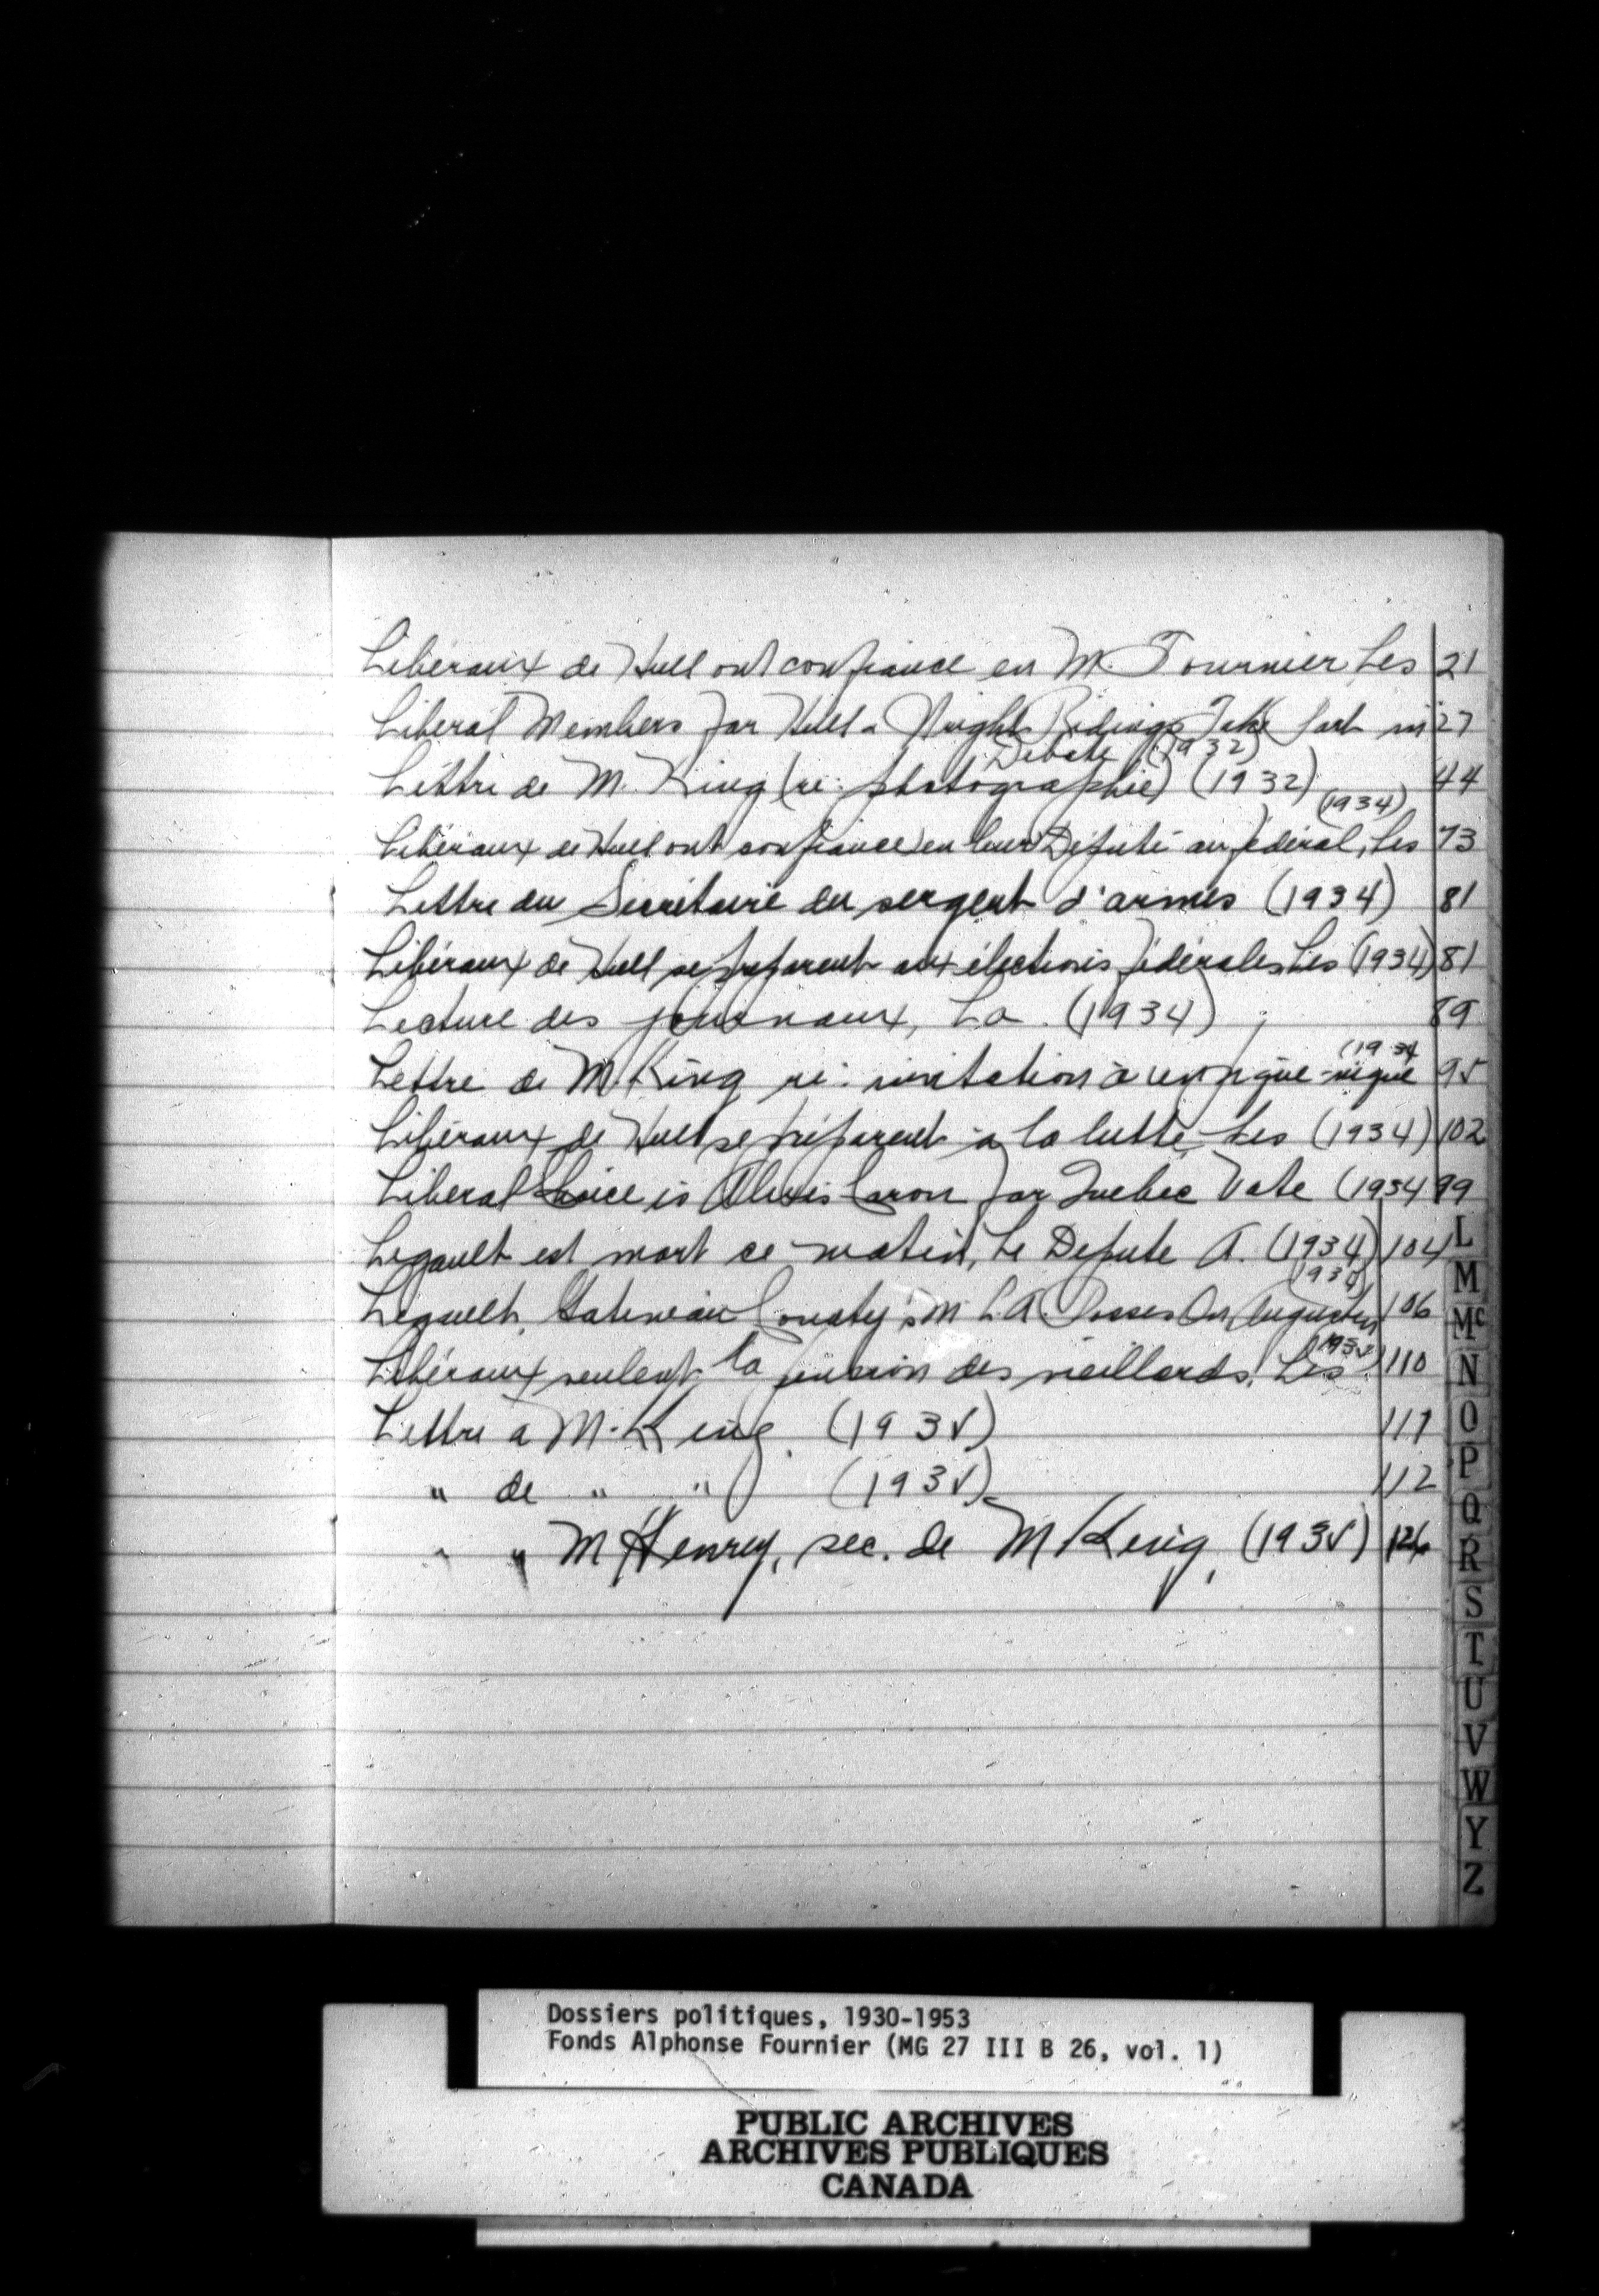 Libéraux de Hull ont confiance en M. Fournier Les 21
Liberal Members for Hull & Wright Ridings Take Part in 27
Debate (1932)
Lettre de M. King (re: photographie) (1932) 44
(1934)
Libéraux de Hull ont confiance en leur Député au fédéral, Les 73
Lettre du Secrétaire du sergent d'armes (1934) 81
Libéraux de Hull se préparent aux élections fédérales, Les (1934) 81
Lecture des journaux, La (1934) 89
(1934
Lettre de M King re: invitation à un pique-nique 95
Libéraux de Hull se préparent à la lutte, Les (1934) 102
Liberal Choice is Alexis Caron for Quebec Vote (1934 99
Legault est mort ce matin, Le Deputé A. (1934) 104
Legault, Gatineau County's M.L.A. Passes On 106
Libéraux veulent la pension des vieillards, Les 110
Lettre a M. King. (1935) 111
" de " " (1935) 112
" " M Henry, sec. de M King, (1935) 126
L
M
Mc
N
O
P
Q
R
S
T
U
V
W
Y
Z
Dossiers politiques, 1930-1953
Fonds Alphonse Fournier (MG 27 III B 26, vol. 1)
PUBLIC ARCHIVES
ARCHIVES PUBLIQUES
CANADA